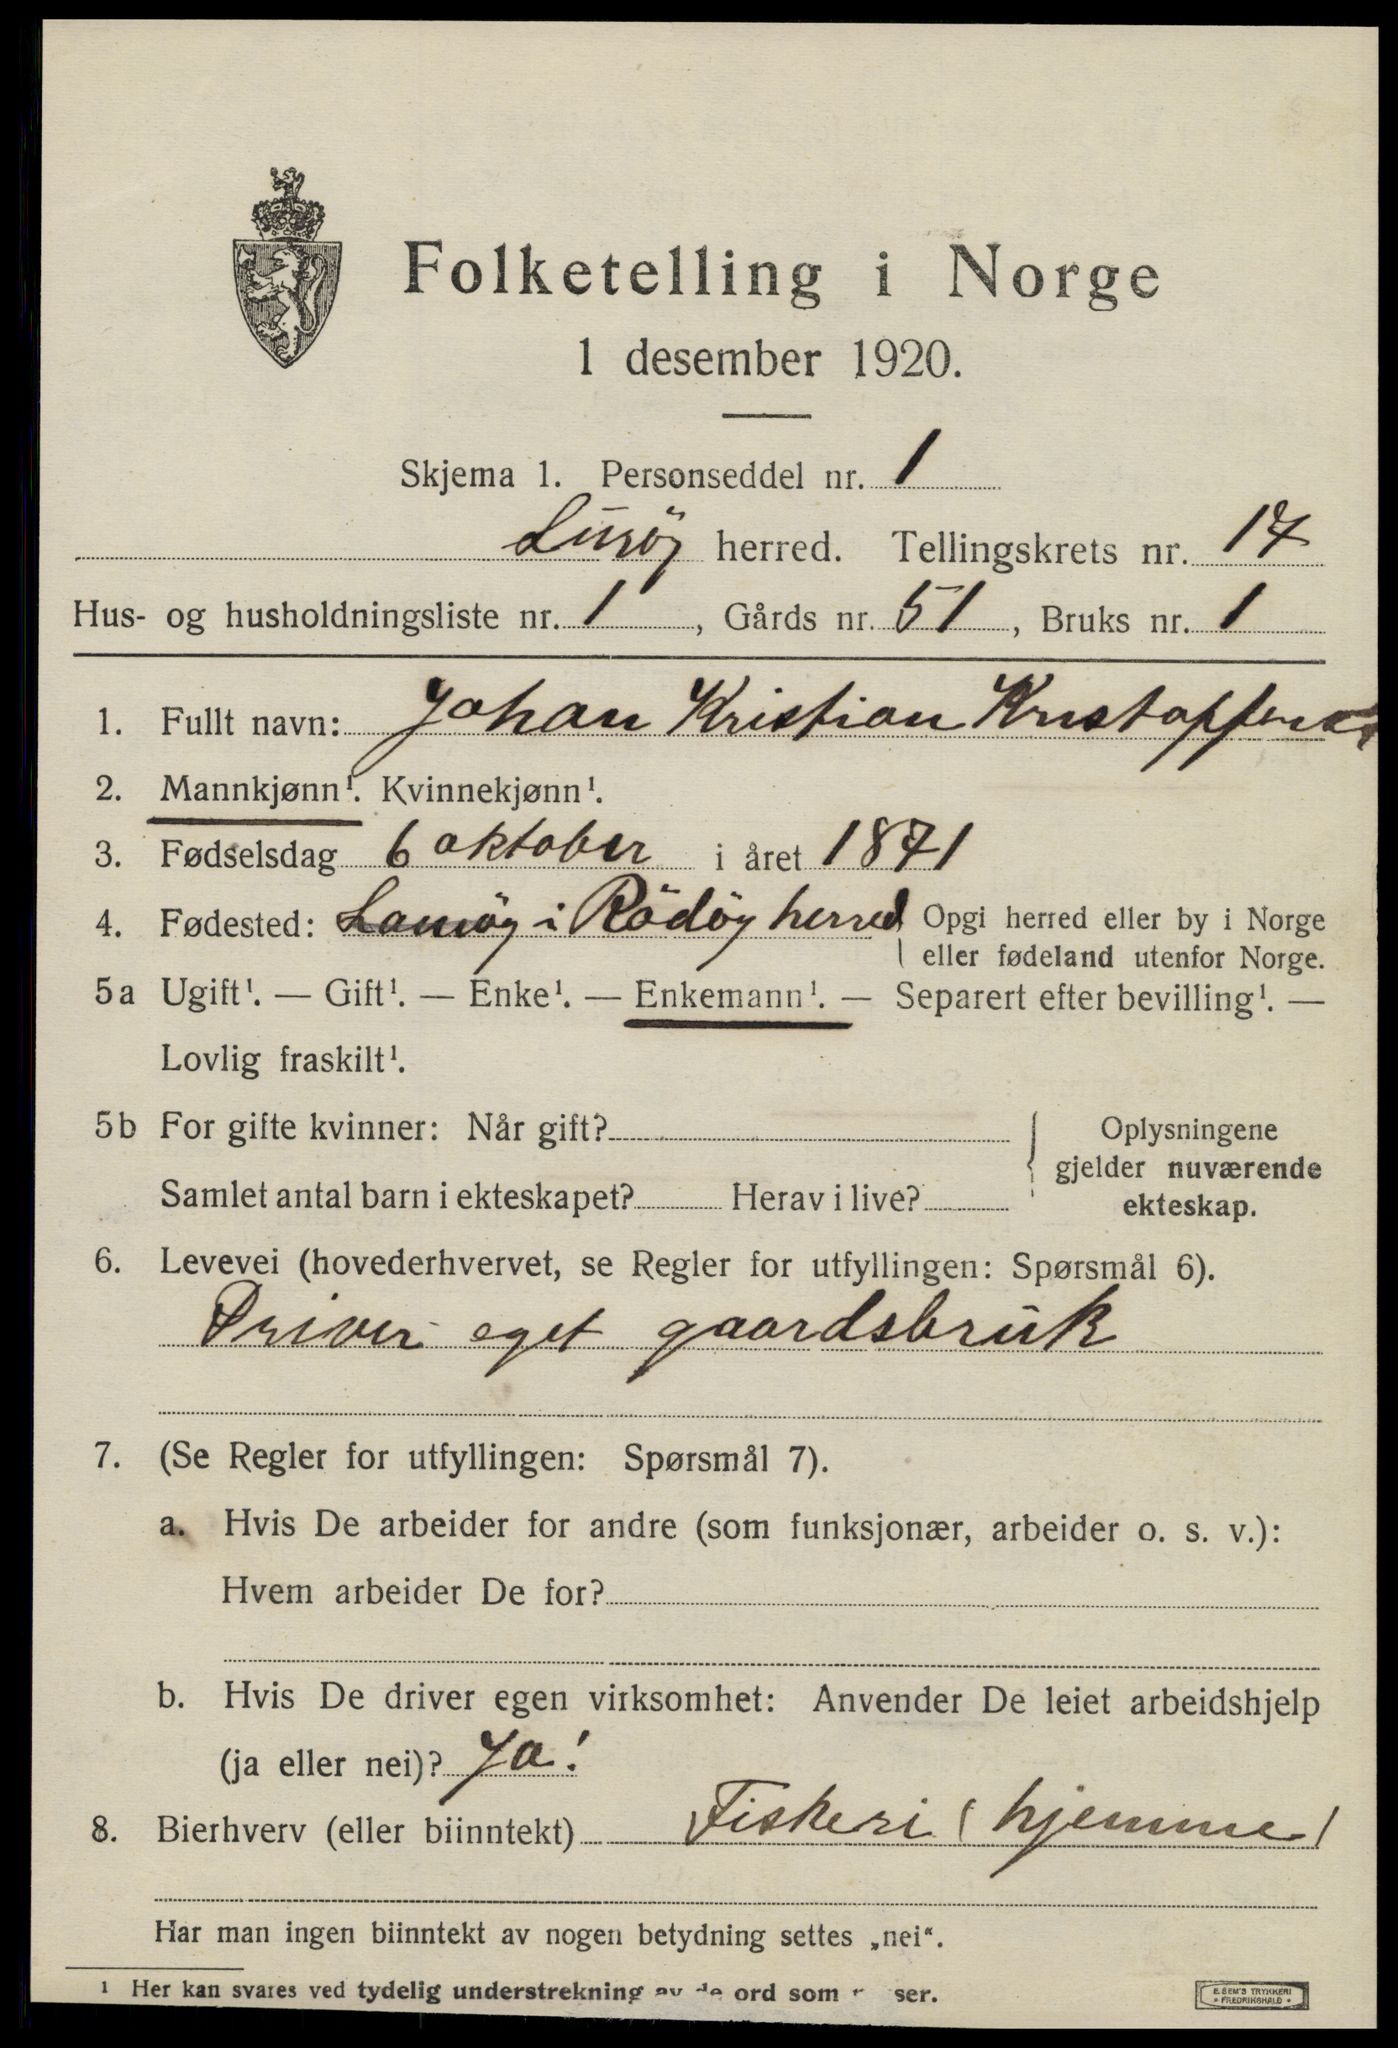 Folketelling i Norge
1 desember 1920.
Skjema 1. Personseddel nr. 1
Lurøy herred. Tellingskrets nr. 17
Hus- og husholdningsliste nr. 1, Gårds nr. 51, Bruks nr. 1
1. Fullt navn: Johan Kristian
2. Mannkjønn¹. Kvinnekjønn¹.
3. Fødselsdag 6 oktober i året 1871
4. Fødested: i Rödöy herred { Opgi herred eller by i Norge
eller fødeland utenfor Norge.
5a Ugift¹. — Gift¹. — Enke¹. — Enkemann¹. — Separert efter bevilling¹. —
Lovlig fraskilt¹.
5b For gifte kvinner: Når gift? Oplysningene
gjelder nuværende
Samlet antal barn i ekteskapet? Herav i live? ekteskap.
6. Levevei (hovederhvervet, se Regler for utfyllingen: Spørsmål 6).
Driver eget gaardsbruk
7. (Se Regler for utfyllingen: Spørsmål 7).
a. Hvis De arbeider for andre (som funksjonær, arbeider o. s. v.):
Hvem arbeider De for?
b. Hvis De driver egen virksomhet: Anvender De leiet arbeidshjelp
(ja eller nei)? Ja!
8. Bierhverv (eller biinntekt) Fiskeri (hjemme)
Har man ingen biinntekt av nogen betydning settes „nei“.
¹ Her kan svares ved tydelig understrekning av de ord som ser.
E. SEM'S TRYKKERI
• FREDRIKSHALD •